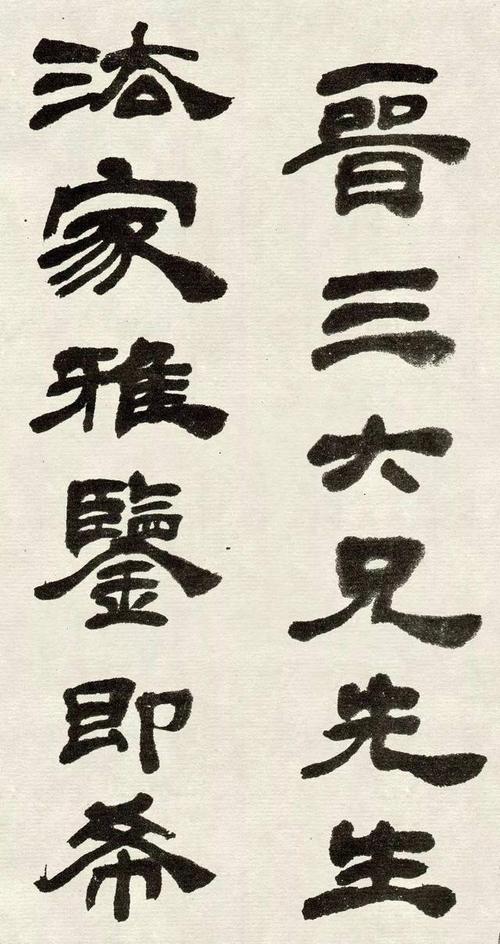 晉三大兄先生
法家雅鑒即希